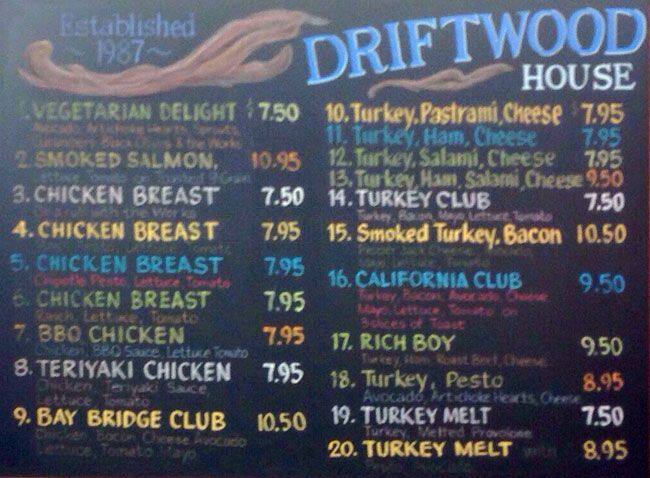 Established
~ 1987 ~
DRIFTWOOD
HOUSE
1. VEGETARIAN DELIGHT $7.50
Avocado, Artichoke Hearts, Sprouts,
Cucumbers, Black Olives & the Works
2. SMOKED SALMON, 10.95
Lettuce, Tomato on Toasted 9 Grain
3. CHICKEN BREAST 7.50
with the Works
4. CHICKEN BREAST 7.95
Tomato
5. CHICKEN BREAST 7.95
Chipotle Pesto, Lettuce, Tomato
6. CHICKEN BREAST 7.95
Ranch, Lettuce, Tomato
7. BBQ CHICKEN 7.95
Chicken, BBQ Sauce, Lettuce Tomato
8. TERIYAKI CHICKEN 7.95
Chicken, Teriyaki Sauce,
Lettuce, Tomato
9. BAY BRIDGE CLUB 10.50
Chicken, Bacon, Cheese Avocado
Lettuce, Tomato, Mayo
10. Turkey, Pastrami, Cheese $7.95
11. Turkey, Ham, Cheese 7.95
12. Turkey, Salami, Cheese 7.95
13. Turkey, Ham, Salami, Cheese 9.50
14. TURKEY CLUB 7.50
Turkey, Bacon, Mayo, Lettuce, Tomato
15. Smoked Turkey, Bacon 10.50
Lettuce, Tomato
16. CALIFORNIA CLUB 9.50
Turkey, Bacon, Avocado, Cheese
Mayo, Lettuce, Tomato on
3 slices of Toast
17. RICH BOY 9.50
Turkey, Ham, Roast Beef, Cheese
18. Turkey, Pesto 8.95
Avocado, Artichoke Hearts, Cheese
19. TURKEY MELT 7.50
Turkey, Melted Provolone
20. TURKEY MELT with 8.95
Pesto, Avocado